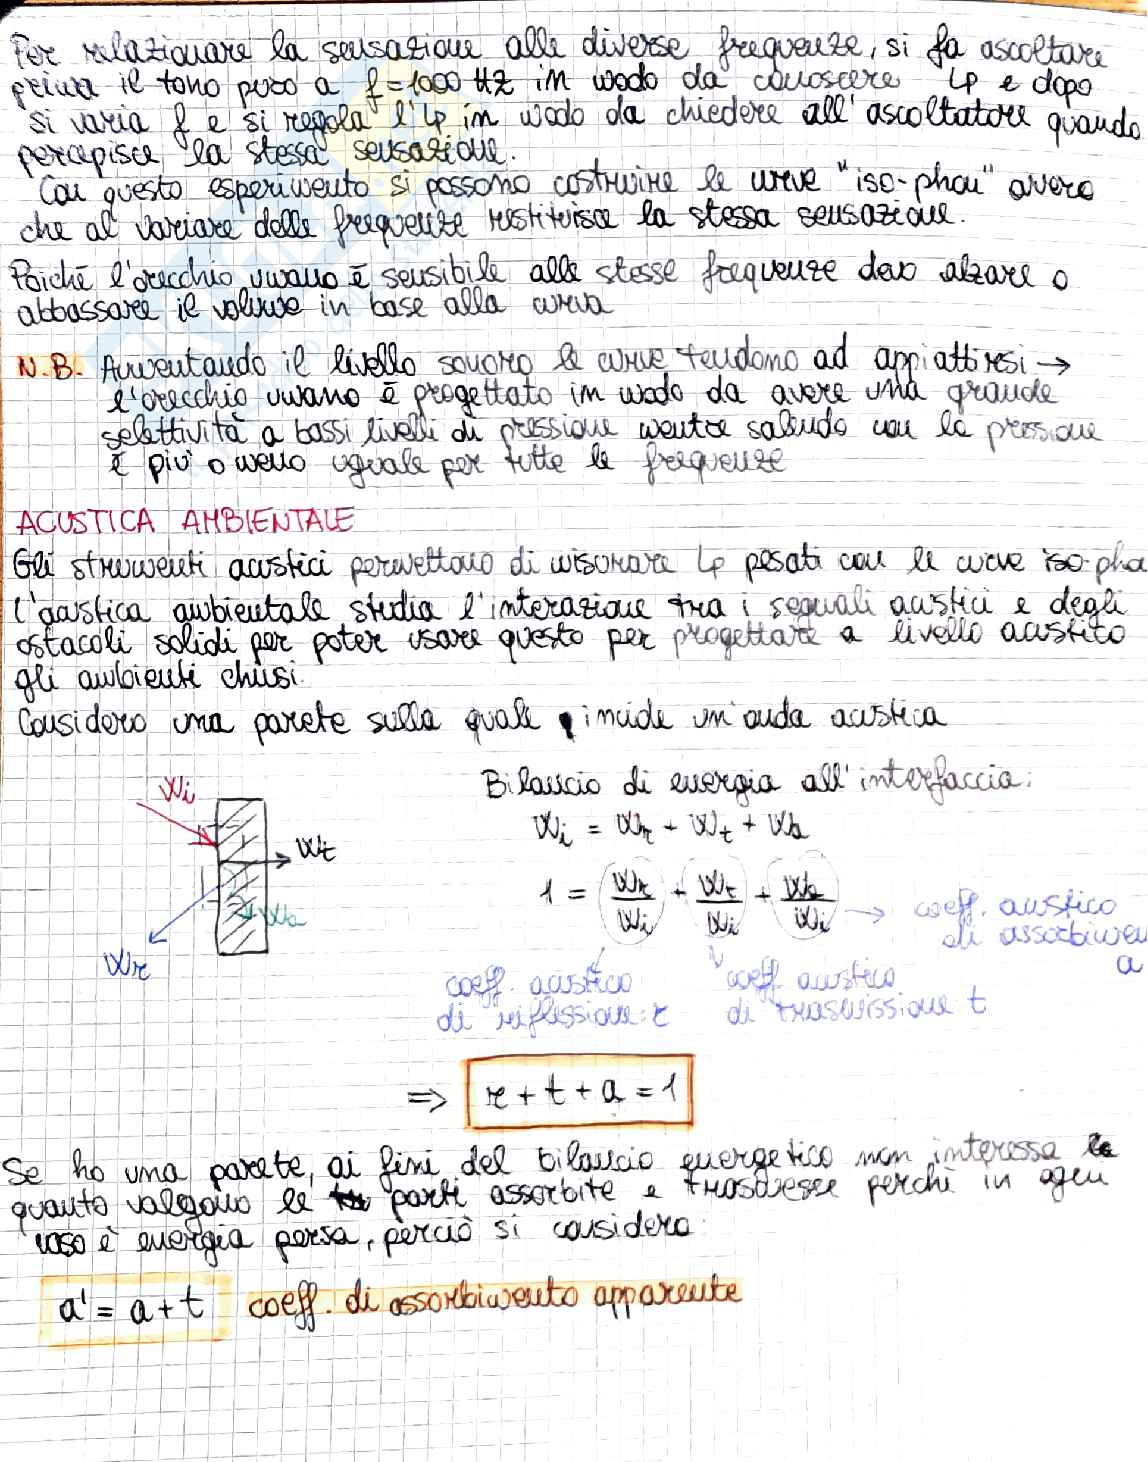 Per relazionare la sensazione alle diverse frequenze, si fa ascoltare
prima il tono puro a f=1000 Hz in modo da conoscere Lp e dopo
si varia f e si regola l'Lp in modo da chiedere all'ascoltatore quando
percepisce la stessa sensazione.
Con questo esperimento si possono costruire le curve "iso-phon" ovvero
che al variare delle frequenze restituisce la stessa sensazione.
Poiché l'orecchio umano è sensibile alle stesse frequenze devo alzare o
abbassare il volume in base alla curva
N.B. Aumentando il livello sonoro le curve tendono ad appiattirsi →
l'orecchio umano è progettato in modo da avere una grande
selettività a bassi livelli di pressione mentre salendo con la pressione
è più o meno uguale per tutte le frequenze
ACUSTICA AMBIENTALE
Gli strumenti acustici permettono di misurare Lp pesati con le curve iso-pho
L'acustica ambientale studia l'interazione tra i segnali acustici e degli
ostacoli solidi per poter usare questo per progettare a livello acustico
gli ambienti chiusi.
Considero una parete sulla quale incide un'onda acustica
Wi
Wt
Wa
Wr
Bilancio di energia all'interfaccia:
Wi = Wr + Wt + Wa
1 = Wr/Wi + Wt/Wi + Wa/Wi → coeff. acustico
di assorbimen
a
coeff. acustico
di riflessione: r
coeff acustico
di trasmissione t
⇒ r + t + a = 1
Se ho una parete, ai fini del bilancio energetico non interessa
quanto valgono le parti assorbite e trasmesse perché in ogni
caso è energia persa, perciò si considera:
a' = a + t coeff. di assorbimento apparente